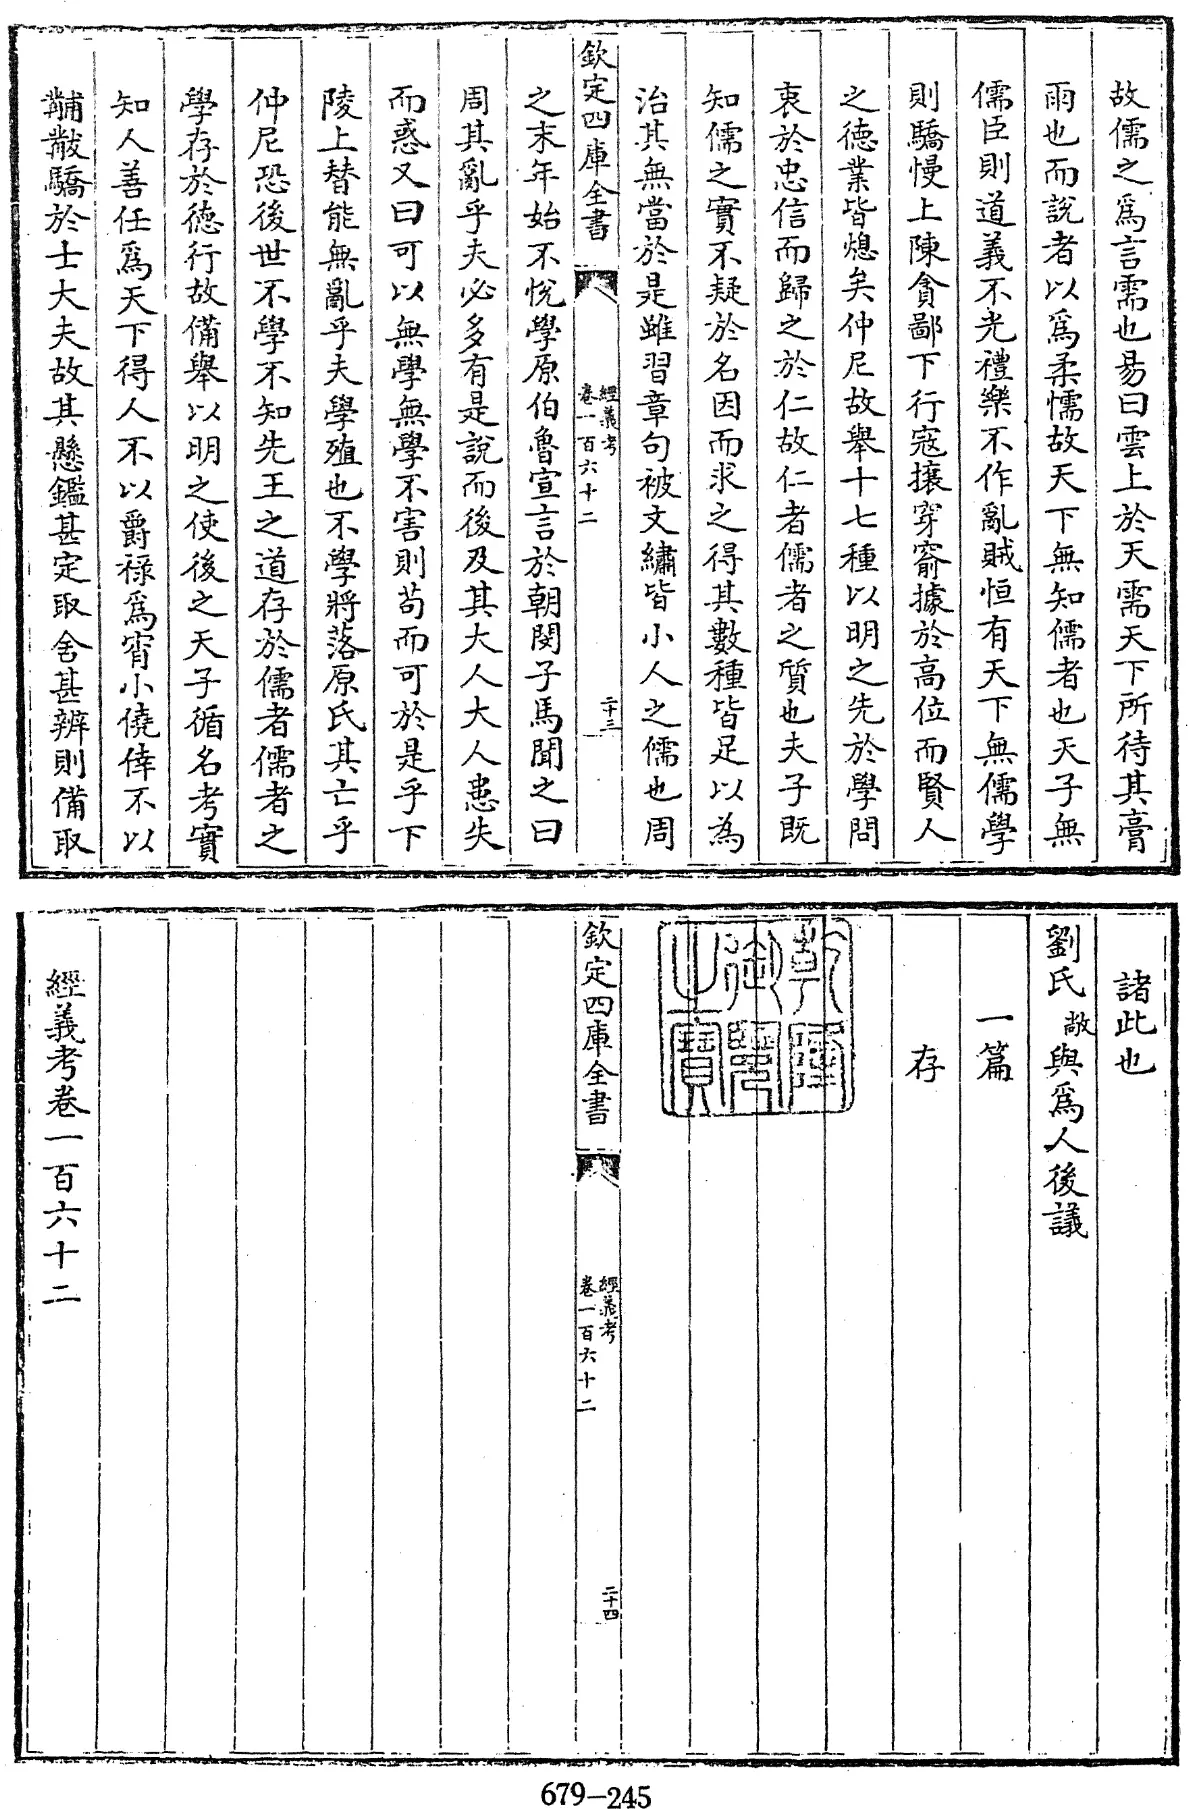 故儒之爲言需也易曰雲上於天需天下所待其膏
雨也而說者以爲柔懦故天下無知儒者也天子無
儒臣則道義不光禮樂不作亂賊恒有天下無儒學
則驕慢上陳貪鄙下行寇攘穿窬據於高位而賢人
之德業皆熄矣仲尼故舉十七種以明之先於學問
衷於忠信而歸之於仁故仁者儒者之質也夫子既
知儒之實不疑於名因而求之得其數種皆足以為
治其無當於是雖習章句被文繡皆小人之儒也周
欽定四庫全書
經義考
卷一百六十二
二十三
之末年始不悅學原伯魯宣言於朝閔子馬聞之曰
周其亂乎夫必多有是說而後及其大人大人患失
而惑又曰可以無學無學不害則苟而可於是乎下
陵上替能無亂乎夫學殖也不學將落原氏其亡乎
仲尼恐後世不學不知先王之道存於儒者儒者之
學存於德行故備舉以明之使後之天子循名考實
知人善任爲天下得人不以爵祿爲宵小僥倖不以
黼黻驕於士大夫故其懸鑑甚定取舍甚辨則備取
諸此也
劉氏敞與爲人後議
一篇
存
乾隆御覽之寶
欽定四庫全書
經義考
卷一百六十二
二十四
經義考卷一百六十二
679-245